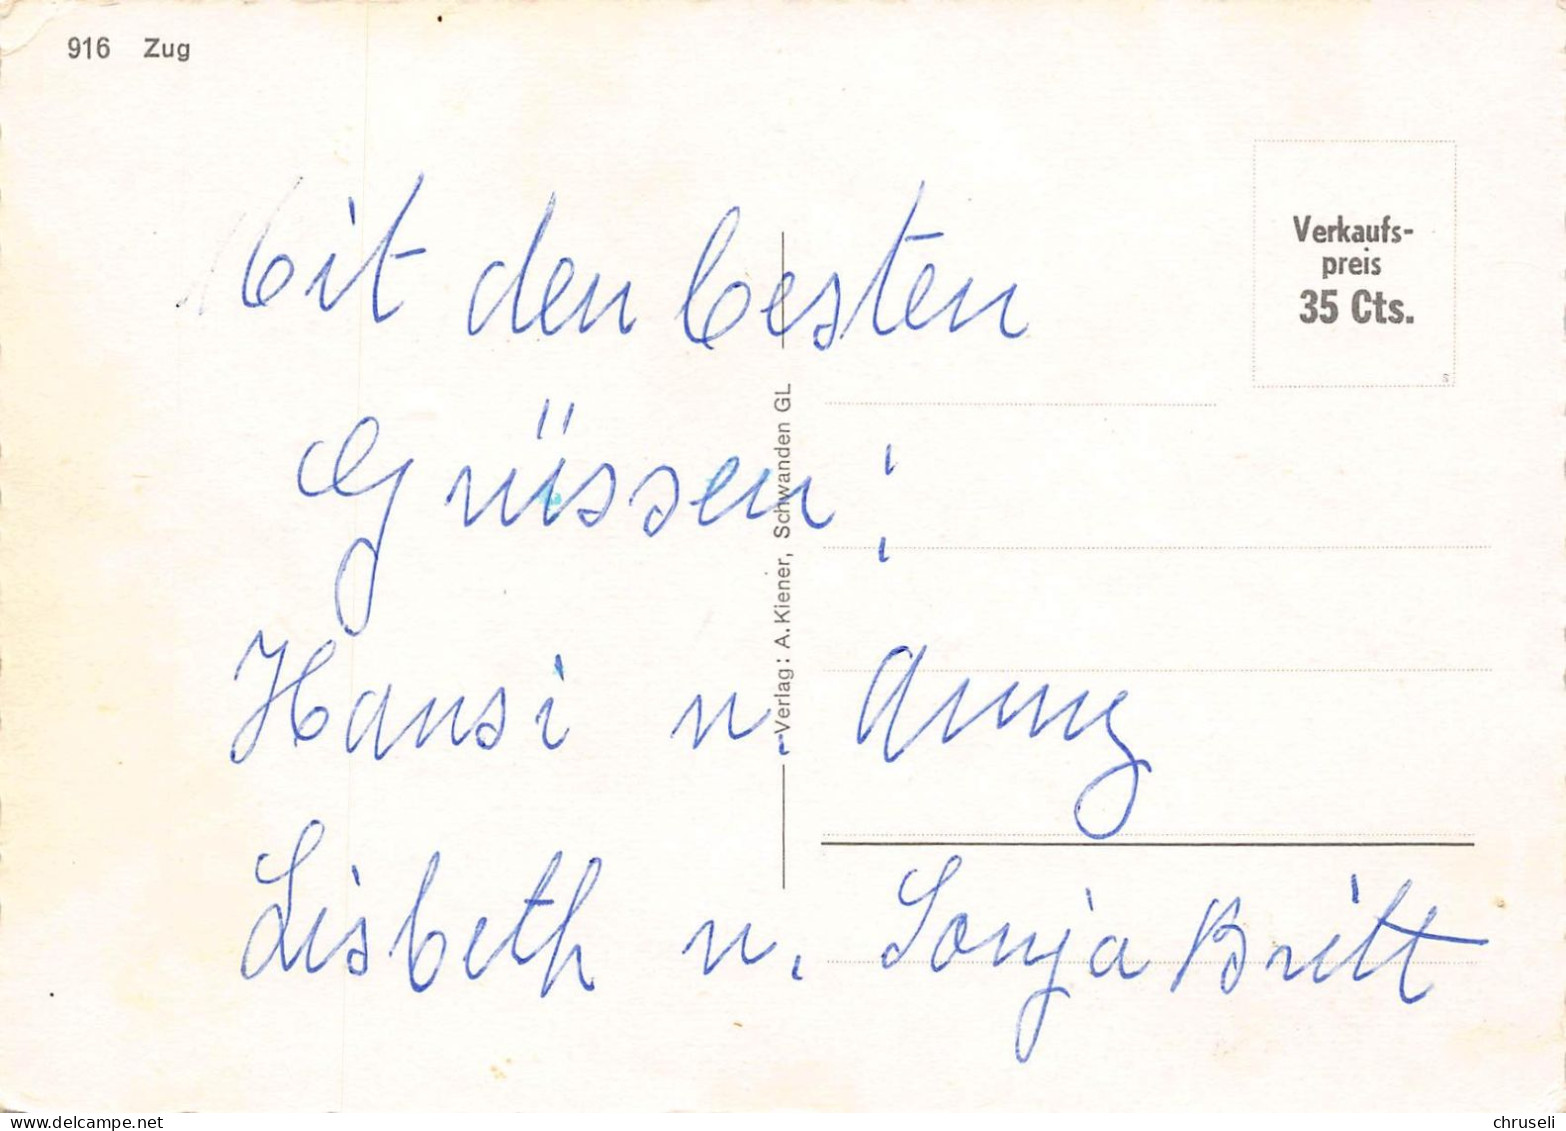 916 Zug
Verkaufs-
preis
35 Cts.
Mit den besten
Grüssen!
Hansi u. Anny
Lisbeth u. Sonja Britt
Verlag: A. Kiener, Schwanden GL
delcampe.net
chruseli